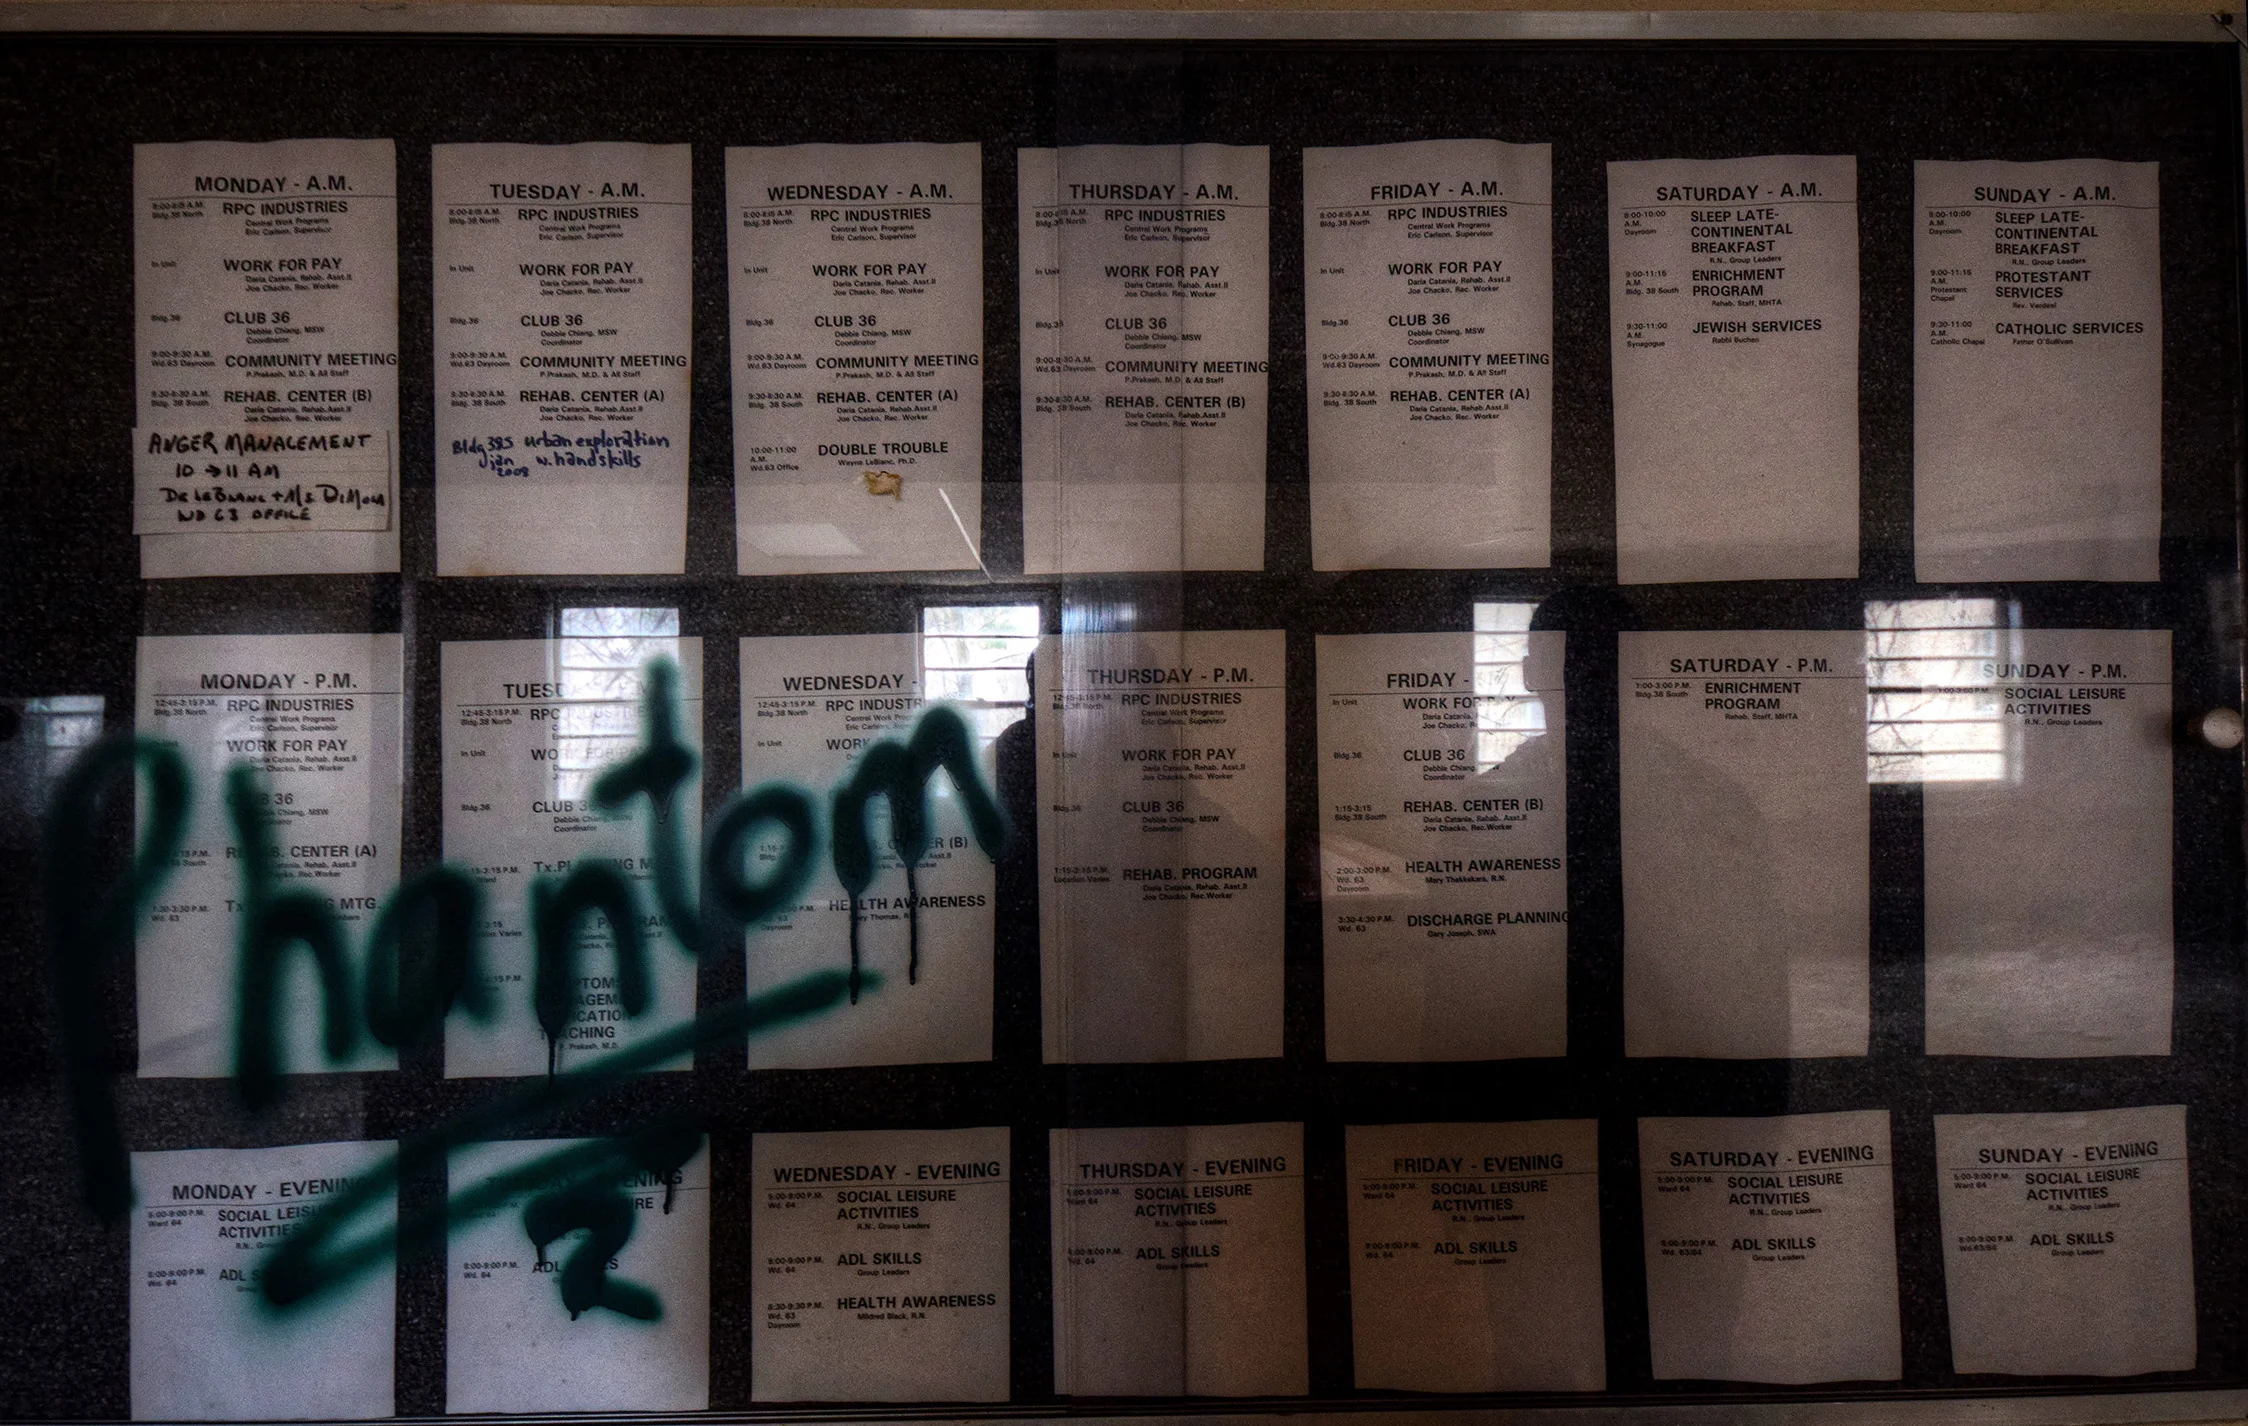 MONDAY - A.M.
8:00-8:15 A.M.
Bldg.38 North
RPC INDUSTRIES
Central Work Programs
Eric Carlson, Supervisor
In Unit
WORK FOR PAY
Daria Catania, Rehab. Asst.II
Joe Chacko, Rec. Worker
Bldg.36
CLUB 36
Debbie Chiang, MSW
Coordinator
9:00-9:30 A.M.
Wd.63 Dayroom
COMMUNITY MEETING
P.Prakash, M.D. & All Staff
Bldg. 38 South
REHAB. CENTER (B)
Daria Catania, Rehab.Asst.II
Joe Chacko, Rec. Worker
ANGER MANAGEMENT
10 → 11 AM
DR LEBLANC + MS
WD 63 OFFICE
TUESDAY - A.M.
8:00-8:15 A.M.
Bldg.38 North
RPC INDUSTRIES
Central Work Programs
Eric Carlson, Supervisor
In Unit
WORK FOR PAY
Daria Catania, Rehab. Asst.II
Joe Chacko, Rec. Worker
Bldg.36
CLUB 36
Debbie Chiang, MSW
Coordinator
9:00-9:30 A.M.
Wd.63 Dayroom
COMMUNITY MEETING
P.Prakash, M.D. & All Staff
Bldg. 38 South
REHAB. CENTER (A)
Daria Catania, Rehab.Asst.II
Joe Chacko, Rec. Worker
Bldg 38S urban exploration
jan w. handskills
2008
WEDNESDAY - A.M.
8:00-8:15 A.M.
Bldg.38 North
RPC INDUSTRIES
Central Work Programs
Eric Carlson, Supervisor
In Unit
WORK FOR PAY
Daria Catania, Rehab. Asst.II
Joe Chacko, Rec. Worker
Bldg.36
CLUB 36
Debbie Chiang, MSW
Coordinator
9:00-9:30 A.M.
Wd.63 Dayroom
COMMUNITY MEETING
P.Prakash, M.D. & All Staff
Bldg. 38 South
REHAB. CENTER (A)
Daria Catania, Rehab.Asst.II
Joe Chacko, Rec. Worker
10:00-11:00
A.M.
Wd.63 Office
DOUBLE TROUBLE
Wayne LeBlanc, Ph.D.
THURSDAY - A.M.
RPC INDUSTRIES
Central Work Programs
Eric Carlson, Supervisor
In Unit
WORK FOR PAY
Daria Catania, Rehab. Asst.II
Joe Chacko, Rec. Worker
Bldg.36
CLUB 36
Debbie Chiang, MSW
Coordinator
9:00-9:30 A.M.
Wd.63 Dayroom
COMMUNITY MEETING
P.Prakash, M.D. & All Staff
Bldg. 38 South
REHAB. CENTER (B)
Daria Catania, Rehab.Asst.II
Joe Chacko, Rec. Worker
FRIDAY - A.M.
8:00-8:15 A.M.
Bldg.38 North
RPC INDUSTRIES
Central Work Programs
Eric Carlson, Supervisor
In Unit
WORK FOR PAY
Daria Catania, Rehab. Asst.II
Joe Chacko, Rec. Worker
Bldg.36
CLUB 36
Debbie Chiang, MSW
Coordinator
9:00-9:30 A.M.
Wd.63 Dayroom
COMMUNITY MEETING
P.Prakash, M.D. & All Staff
Bldg. 38 South
REHAB. CENTER (A)
Daria Catania, Rehab.Asst.II
Joe Chacko, Rec. Worker
SATURDAY - A.M.
8:00-10:00
A.M.
Dayroom
SLEEP LATE-
CONTINENTAL
BREAKFAST
R.N., Group Leaders
9:00-11:15
A.M.
Bldg. 38 South
ENRICHMENT
PROGRAM
Rehab. Staff, MHTA
9:30-11:00
A.M.
Synagogue
JEWISH SERVICES
Rabbi
SUNDAY - A.M.
8:00-10:00
A.M.
Dayroom
SLEEP LATE-
CONTINENTAL
BREAKFAST
R.N., Group Leaders
9:00-11:15
A.M.
Protestant
Chapel
PROTESTANT
SERVICES
Rev.
9:30-11:00
A.M.
Catholic Chapel
CATHOLIC SERVICES
Father O'Sullivan
MONDAY - P.M.
12:45-3:15 P.M.
Bldg.38 North
RPC INDUSTRIES
Central Work Programs
Eric Carlson, Supervisor
WORK FOR PAY
Daria Catania, Rehab. Asst.II
Joe Chacko, Rec. Worker
36
MSW
CENTER (A)
Rehab. Asst.II
Rec.Worker
Wd. 63
MTG.
TUES
12:45-3:15 P.M.
Bldg.38 North
RPC
In Unit
WORK FOR PA
Bldg.36
CLUB 3
Debbie
Coordinator
P. Prakash, M.D.
WEDNESDAY -
12:45-3:15 P.M.
Bldg.38 North
RPC INDUSTR
In Unit
WORK
HEALTH AWARENESS
Dayroom
Phantom
THURSDAY - P.M.
RPC INDUSTRIES
Central Work Programs
Eric Carlson, Supervisor
In Unit
WORK FOR PAY
Daria Catania, Rehab. Asst.II
Joe Chacko, Rec. Worker
Bldg.36
CLUB 36
Debbie Chiang, MSW
Coordinator
1:15-3:15 P.M.
Location Varies
REHAB. PROGRAM
Daria Catania, Rehab. Asst.II
Joe Chacko, Rec.Worker
FRIDAY -
In Unit
WORK FOR
Daria Catania,
Joe Chacko,
Bldg.36
CLUB 36
Debbie Chiang,
Coordinator
1:15-3:15
Bldg.38 South
REHAB. CENTER (B)
Daria Catania, Rehab. Asst.II
Joe Chacko, Rec.Worker
2:00-3:00 P.M.
Wd. 63
Dayroom
HEALTH AWARENESS
Mary Thekkekara, R.N.
3:30-4:30 P.M.
Wd. 63
DISCHARGE PLANNING
Gary Joseph, SWA
SATURDAY - P.M.
1:00-3:00 P.M.
Bldg.38 South
ENRICHMENT
PROGRAM
Rehab. Staff, MHTA
SUNDAY - P.M.
SOCIAL LEISURE
ACTIVITIES
R.N., Group Leaders
MONDAY - EVENING
Ward 64
SOCIAL LEISU
ACTIVITIES
8:00-9:00 P.M.
Wd. 64
ADL
8:00-9:00 P.M.
Wd. 64
ADL
2
WEDNESDAY - EVENING
Wd. 64
SOCIAL LEISURE
ACTIVITIES
R.N., Group Leaders
8:00-9:00 P.M.
Wd. 64
ADL SKILLS
Group Leaders
8:30-9:30 P.M.
Wd. 63
Dayroom
HEALTH AWARENESS
Mildred Black, R.N.
THURSDAY - EVENING
Ward 64
SOCIAL LEISURE
ACTIVITIES
R.N., Group Leaders
Wd. 64
ADL SKILLS
Group Leaders
FRIDAY - EVENING
Ward 64
SOCIAL LEISURE
ACTIVITIES
R.N., Group Leaders
Wd. 64
ADL SKILLS
Group Leaders
SATURDAY - EVENING
Ward 64
SOCIAL LEISURE
ACTIVITIES
R.N., Group Leaders
8:00-9:00 P.M.
Wd. 63/64
ADL SKILLS
Group Leaders
SUNDAY - EVENING
Ward 64
SOCIAL LEISURE
ACTIVITIES
R.N., Group Leaders
8:00-9:00 P.M.
Wd.63/64
ADL SKILLS
Group Leaders